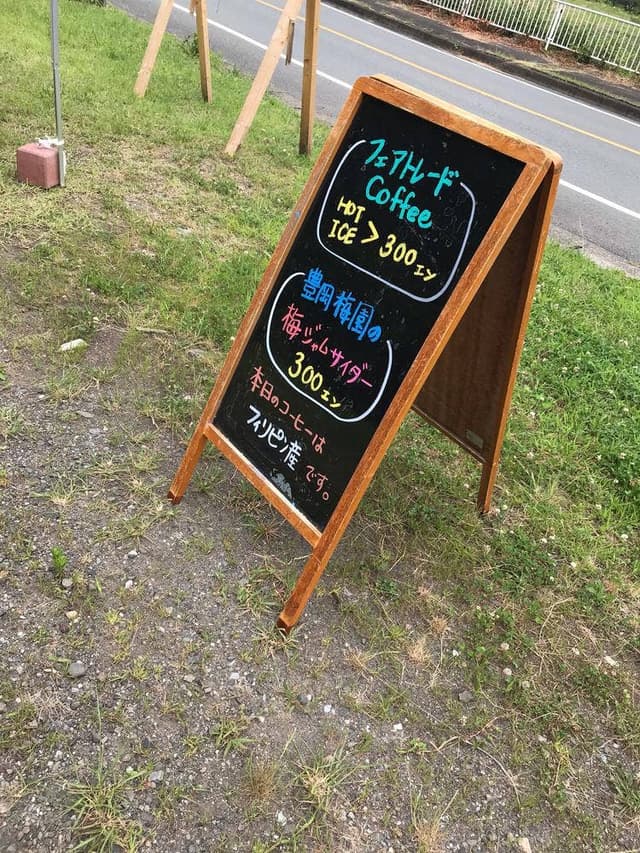 フェアトレード
Coffee
HOT
ICE > 300エン
豊岡梅園の
梅ジャムサイダー
300エン
本日のコーヒーは
フィリピン産です。